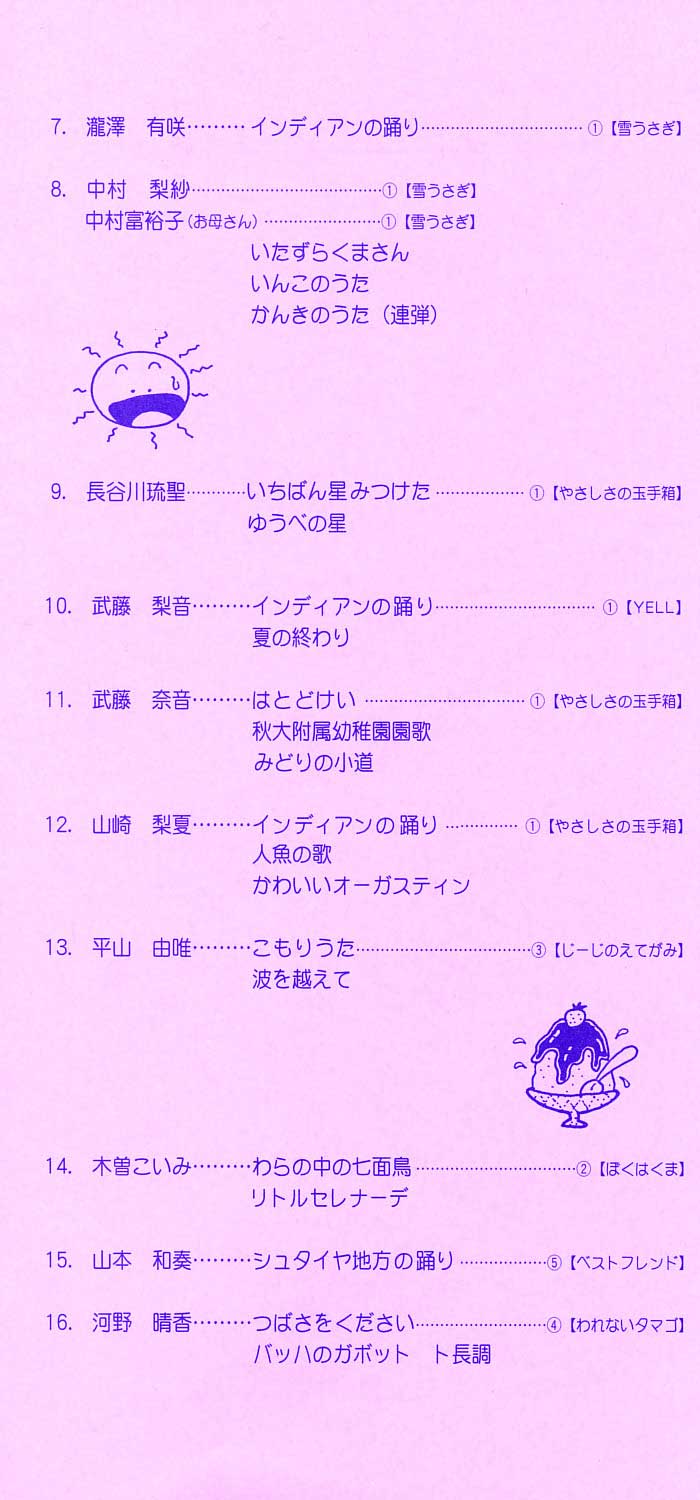 7. 瀧澤　有咲………インディアンの踊り……………………………①【雪うさぎ】
8. 中村　梨紗…………………………………①【雪うさぎ】
中村富裕子(お母さん)……………………①【雪うさぎ】
いたずらくまさん
いんこのうた
かんきのうた（連弾）
9. 長谷川琉聖…………いちばん星みつけた………………①【やさしさの玉手箱】
ゆうべの星
10. 武藤　梨音………インディアンの踊り……………………………①【YELL】
夏の終わり
11. 武藤　奈音………はとどけい……………………………①【やさしさの玉手箱】
秋大附属幼稚園園歌
みどりの小道
12. 山崎　梨夏………インディアンの踊り……………①【やさしさの玉手箱】
人魚の歌
かわいいオーガスティン
13. 平山　由唯………こもりうた………………………………③【じーじのえてがみ】
波を越えて
14. 木曽こいみ………わらの中の七面鳥……………………………②【ぼくはくま】
リトルセレナーデ
15. 山本　和奏………シュタイヤ地方の踊り………………⑤【ベストフレンド】
16. 河野　晴香………つばさをください………………………④【われないタマゴ】
バッハのガボット　ト長調